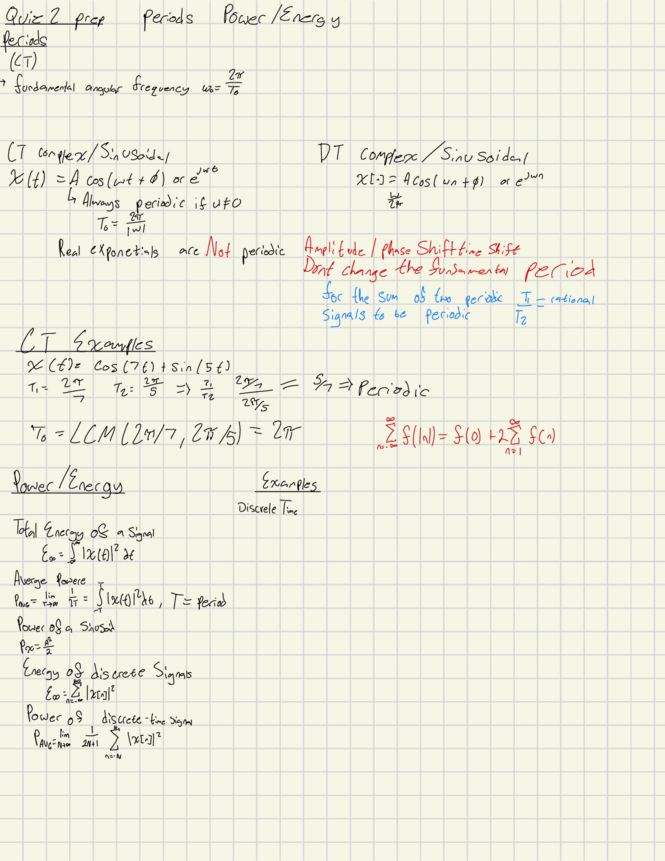 Quiz 2 prep   periods   Power/Energy
Periods
(CT)
→ fundamental angular frequency ω₀ = 2π/T₀
CT complex/Sinusoidal
x(t) = A cos(ωt + φ) or e^jωt
↳ Always periodic if ω≠0
T₀ = 2π/|ω|
DT complex/Sinusoidal
x[·] = A cos(ωn + φ) or e^jωn
ω/2π
Real exponetials are Not periodic
Amplitude/phase Shift time Shift
Dont change the fundamental period
for the sum of two periodic T₁/T₂ = rational
signals to be periodic
CT Examples
x(t) = cos(7t) + sin(5t)
T₁ = 2π/7   T₂ = 2π/5 ⇒ T₁/T₂   (2π/7)/(2π/5) = 5/7 ⇒ Periodic
T₀ = LCM(2π/7, 2π/5) = 2π
∑_{n=-∞}^{∞} f(|n|) = f(0) + 2∑_{n=1}^{∞} f(n)
Power/Energy
Examples
Discrete Time
Total Energy of a signal
E∞ = ∫_{-∞}^{∞} |x(t)|² dt
Averge Powere
P_AVG = lim_{T→∞} 1/2T = ∫_{-T}^{T} |x(t)|² dt, T = Period
Power of a sinusoid
Px = A²/2
Energy of discrete Signals
E∞ = ∑_{n=-∞}^{∞} |x[n]|²
Power of discrete-time signal
P_AVG = lim_{N→∞} 1/2N+1 ∑_{n=-N}^{N} |x[n]|²